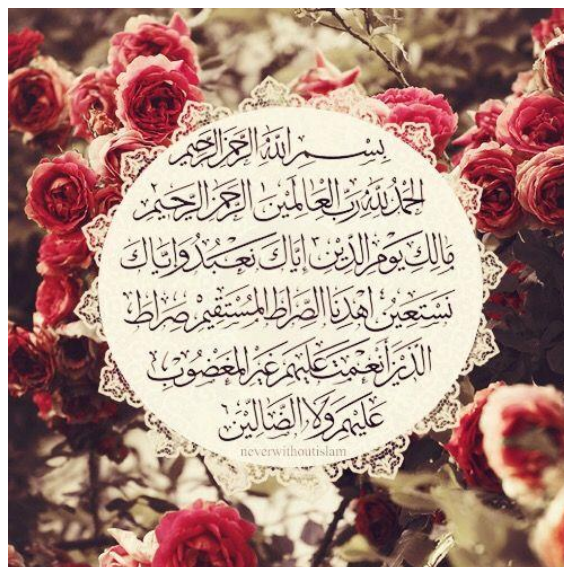 بسم الله الرحمن الرحيم
الحمد لله رب العالمين الرحمن الرحيم
مالك يوم الدين إياك نعبد وإياك
نستعين اهدنا الصراط المستقيم صراط
الذين أنعمت عليهم غير المغضوب
عليهم ولا الضالين
neverwithoutislam